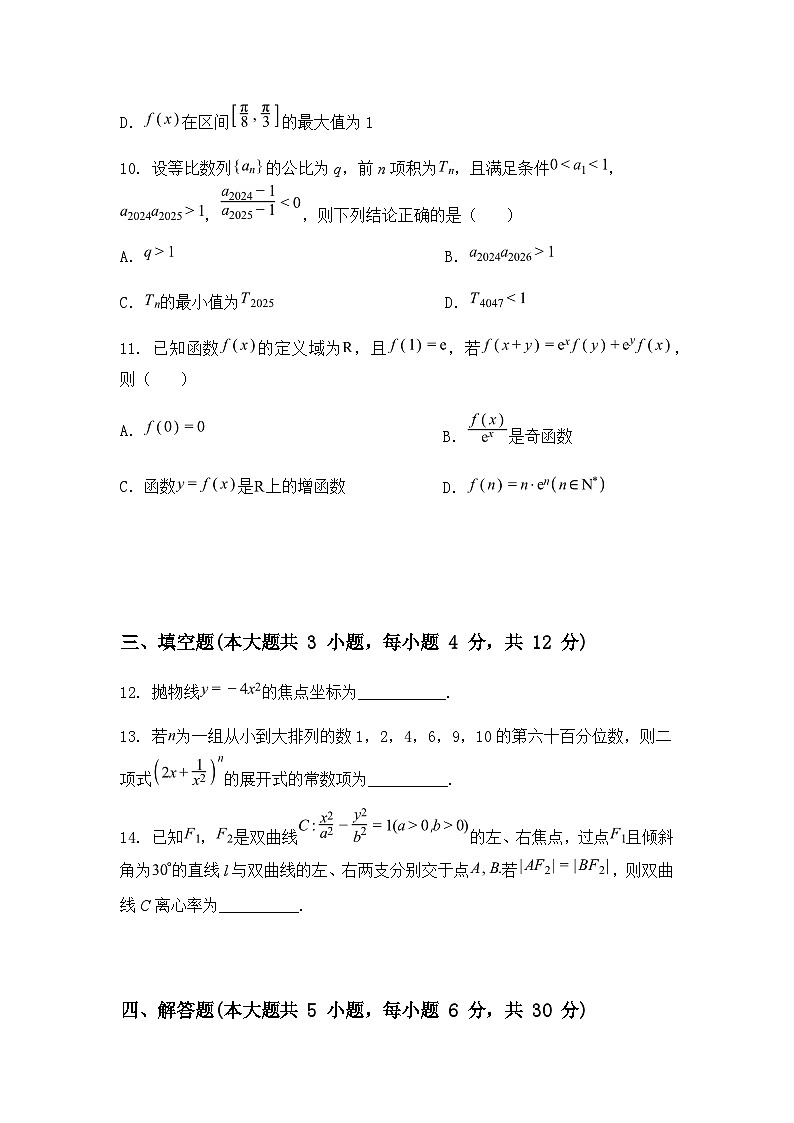 D. f(x)在区间[π/8, π/3]的最大值为1
10. 设等比数列{aₙ}的公比为q，前n项积为Tₙ，且满足条件0<a₁<1，
a₂₀₂₄a₂₀₂₅>1，(a₂₀₂₄−1)/(a₂₀₂₅−1)<0，则下列结论正确的是（　　）
A. q>1　　B. a₂₀₂₄a₂₀₂₆>1
C. Tₙ的最小值为T₂₀₂₅　　D. T₄₀₄₇<1
11. 已知函数f(x)的定义域为R，且f(1)=e，若f(x+y)=eˣf(y)+eʸf(x)，
则（　　）
A. f(0)=0　　B. f(x)/eˣ是奇函数
C. 函数y=f(x)是R上的增函数　　D. f(n)=n·eⁿ(n∈N*)
三、填空题(本大题共 3 小题，每小题 4 分，共 12 分)
12. 抛物线y=−4x²的焦点坐标为___________.
13. 若n为一组从小到大排列的数1，2，4，6，9，10的第六十百分位数，则二
项式(2x+1/x²)ⁿ的展开式的常数项为__________.
14. 已知F₁，F₂是双曲线C:x²/a²−y²/b²=1(a>0,b>0)的左、右焦点，过点F₁且倾斜
角为30°的直线l与双曲线的左、右两支分别交于点A, B.若|AF₂|=|BF₂|，则双曲
线C离心率为__________.
四、解答题(本大题共 5 小题，每小题 6 分，共 30 分)